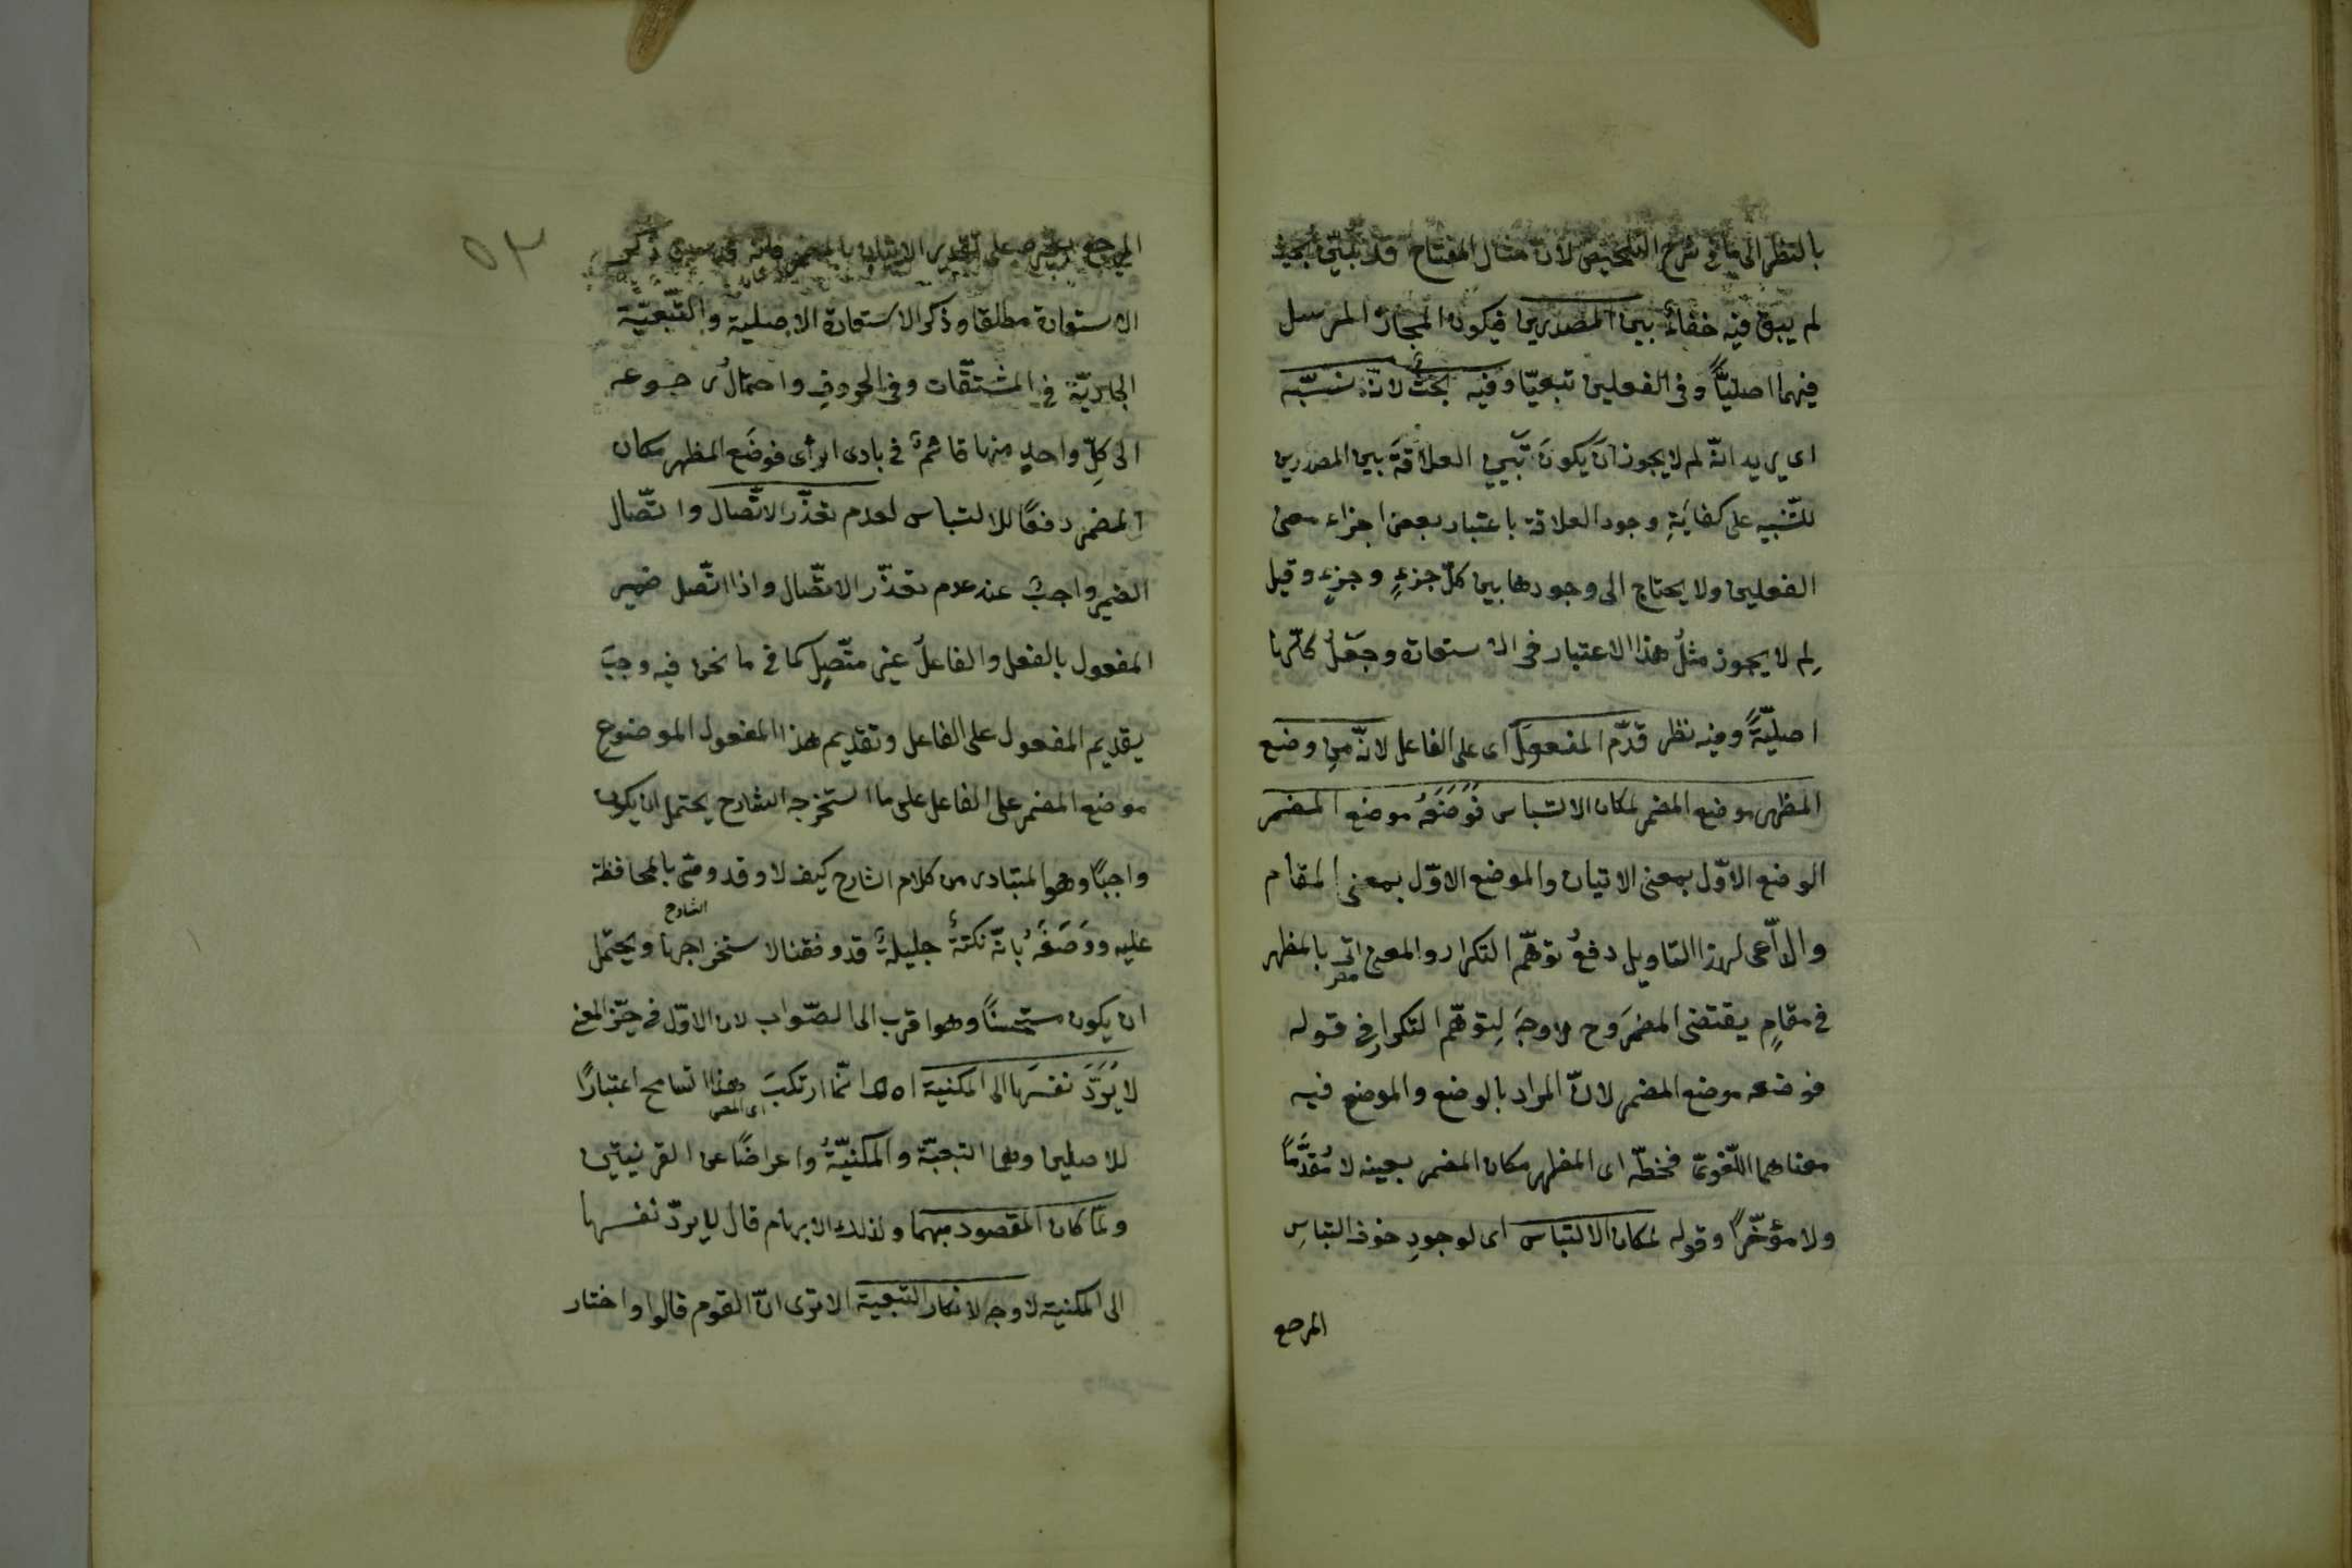 بالنظر الى ما فى شرح التلخيص لان مثال المفتاح
لم يبق فيه خفاءٌ بين المصدرين فيكون المجاز المرسل
فيهما اصليًّا وفى الفعلين تبعيّا وفيه بحثٌ لانّه شبّه
اى يريد انّه لم لا يجوز ان يكون العلاقة بين المصدرين
للتّنبيه على كفايةِ وجود العلاقة باعتبار بعض اجزاء معنى
الفعلين ولا يحتاج الى وجودها بين كلّ جزءٍ وجزءٍ وقيل
لِم لا يجوز مثلُ هذا الاعتبار فى الاستعارة وجَعلُ كلّها
اصليّةً وفيه نظر قدّم المفعولَ اى على الفاعل لانّه مِن وضع
المظهر موضع المضمر لمكان الالتباس فَوَضَعَهُ موضع المضمر
الوضع الاوّل بمعنى الاتيان والموضع الاوّل بمعنى المقام
والدّاعى لهذا التاويل دفعُ توهّم التكرار والمعنى اتى بالمظهر
مص
فى مقامٍ يقتضى المضمرَ وح لا وجهَ لِتوهّم التكرارِ فى قوله
فوضعه موضع المضمر لانّ المراد بالوضع والموضع فيه
معناهما اللّغوىّ فخطّه اى المظهر مكان المضمر بعينه لا مُقَدَّمًا
ولا مؤخّرًا وقوله لمكان الالتباس اى لوجودِ خوف التباسِ
المرجع
٥٢
المرجع على تقدير الاتيان بالمضمر
الاستعارة مطلقا وذكر الاستعارة الاصلية والتّبعيّة
الجاريّة فى المشتقّات وفى الحروفِ واحتمالُ رجوعه
الى كلِّ واحدٍ منها قائمٌ فى بادى الرأى فوضَع المظهر مكان
المضمر دفعًا للالتباس لعدم تعذّر الاتّصال واتّصال
الضمير واجبٌ عند عدم تعذّر الاتّصال واذا اتّصل ضمير
المفعول بالفعل والفاعلُ غير متّصِلٍ كما فى ما نحن فيه وجبَ
يقديم المفعول على الفاعل وتقديم هذا المفعول الموضوع
موضع المضمر على الفاعل على ما استخرجه الشارح يحتمل ان يكون
واجبًا وهو المتبادر من كلام الشارح كيف لا وقد وصّى بالمحافظة
عليه ووَصَفَهُ بانّه نكتةٌ جليلةٌ قد وفقنا لاستخراجها ويحتمل
الشارح
ان يكون مستحسنًا وهو اقرب الى الصّواب لان الاوّل فى حيّز المنع
لا يَرُدَّ نفسَها الى المكنية اه انّما ارتكبَ هذا التسامح اعتبارًا
اى المص
للاصلين وهما التبعيّة والمكنيّةُ واعراضًا عن القرينتين
ولمّا كان المقصود مبهما ولذلك الابهام قال لا يردّ نفسها
الى المكنية لا وجه لانكار التبعية الا ترى انّ القوم قالوا واختار